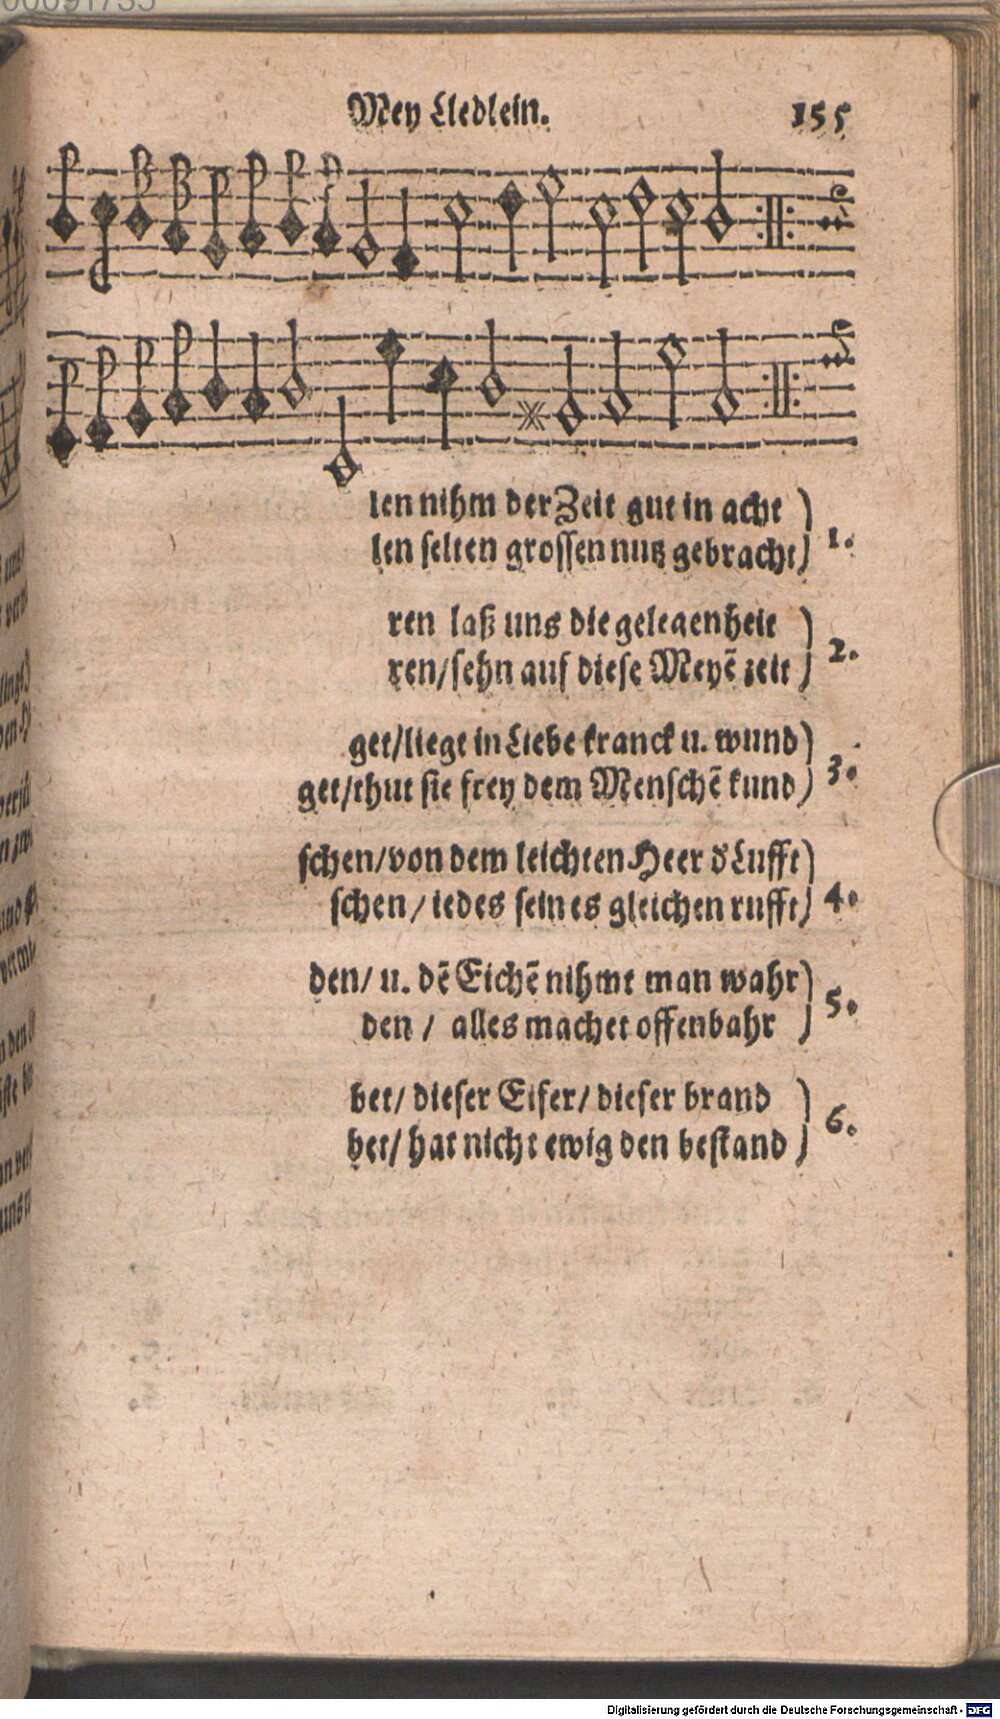 Mey Liedlein. 155
len nihm der Zeit gut in acht
len selten grossen nutz gebracht) 1.
ren laß uns die gelegenheit
ren/sehn auf diese Meyẽ zeit) 2.
get/liegt in Liebe kranck u. wund)
get/thut sie frey dem Menschẽ kund) 3.
schen/von dem leichten Heer d Lufft)
schen/iedes seines gleichen rufft) 4.
den/ u. dẽ Eichẽ nihmt man wahr)
den / alles machet offenbahr) 5.
bet/ dieser Eifer/ dieser brand)
bet/ hat nicht ewig den bestand) 6.
Digitalisierung gefördert durch die Deutsche Forschungsgemeinschaft - DFG